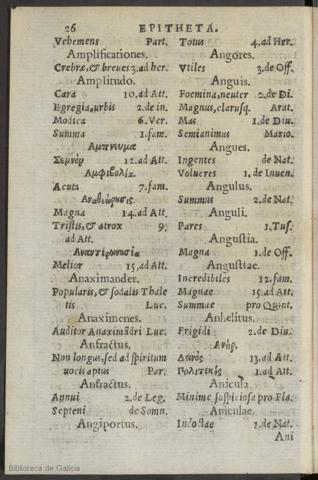 26 EPITHETA.
Vehemens Part.
Amplificationes.
Crebræ, & breues 3. ad her.
Amplitudo.
Cara 10. ad Att.
Egregia, urbis 2. de in.
Modica 6. Ver.
Summa 1. fam.
Αμπνευμα
Σεμνὸν 12. ad Att.
Αμφιβολία.
Acuta 7. fam.
Αναθεώρησις
Magna 14. ad Att.
Tristis, & atrox 9.
ad Att.
Αναντιφωνησία
Melior 15, ad Att.
Anaximander.
Popularis, & sodalis Thale
tis Luc.
Anaximenes.
Auditor Anaximãdri Luc.
Anfractus.
Non longus, sed ad spiritum
uocis aptus Par.
Anfractus.
Annui 2. de Leg.
Septeni de Somn.
Angiportus.
Totus 4. ad Her.
Angores.
Vtiles 3. de Off.
Anguis.
Foemina, neuter 2. de Di.
Magnus, clarusq. Arat.
Mas 1. de Diu.
Semianimus Mario.
Angues.
Ingentes de Nat.
Volucres 1. de Inuen.
Angulus.
Summus 2. de Nat.
Anguli.
Pares 1. Tus.
Angustia.
Magna 1. de Off.
Angustiae.
Incredibiles 12. fam.
Magnae 15. ad Att.
Summae pro Quint.
Anhelitus.
Frigidi 2. de Diu.
Ανηρ.
Δεινὸς 13. ad Att.
Πολιτικὸς 1. ad Att.
Anicula.
Minime suspiciosa pro Fla.
Aniculae.
Indoctae 1. de Nat.
Ani
Biblioteca de Galicia